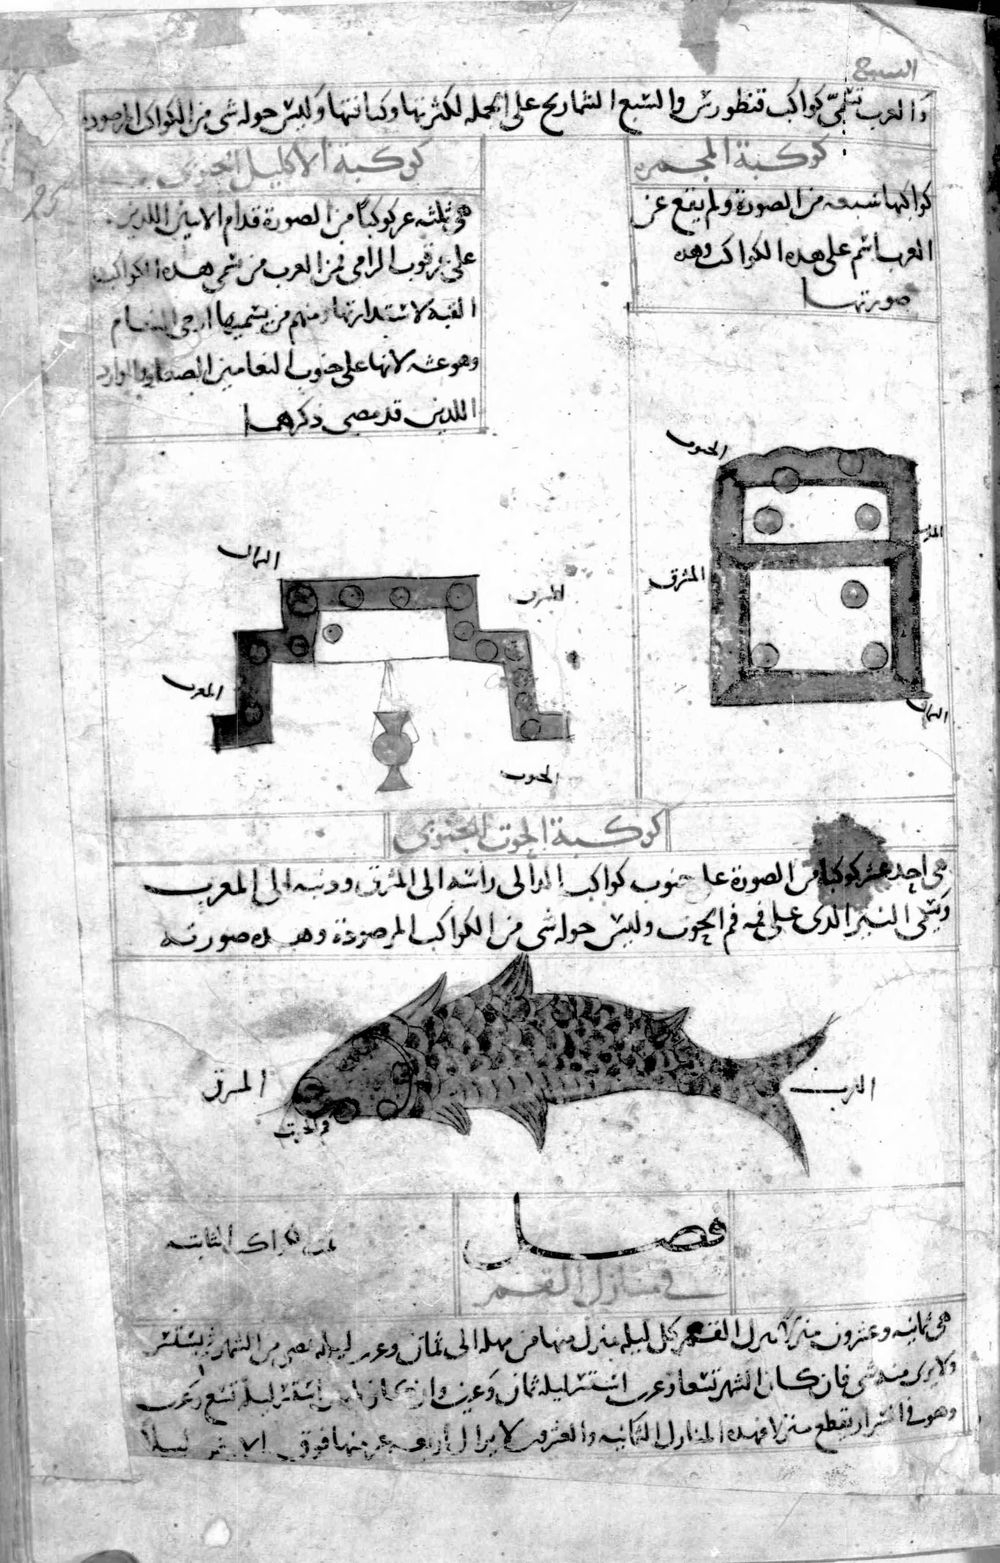 السبع
والعرب تسمى كواكب قنطورس والسبع الشماريخ على الجمله لكثرتها وكثافتها وليس حوله شى من الكواكب المرصوده
كوكبة المجمره
كواكبها سبعه من الصورة ولم يقع عن
العرب اسم على هذه الكواكب وهذه
صورتها
كوكبة الاكليل الجنوبى
هى ثلثه عشر كوكبا من الصورة قدام الاثنين اللذين
على عرقوب الرامى فمن العرب من سمى هذه الكواكب
القبه لاستدارتها ومنهم من يسميها ادحى النعام
وهو عشه لانها على جنوب النعامين الصادر والوارد
اللذين قد مضى ذكرهما
الجنوب
المغرب
المشرق
الشمال
الشمال
المشرق
المغرب
الجنوب
كوكبة الحوت الجنوبى
هى احد عشر كوكبا من الصورة على جنوب كواكب الدالى راسه الى المشرق وذنبه الى المغرب
ويسمى النير الذى على فمه فم الحوت وليس حوله شى من الكواكب المرصودة وهذه صورته
المشرق
فم الحوت
المغرب
فصل
فى منازل القمر
الكواكب الثابته
هى ثمانيه وعشرون منزلا ينزل القمر كل ليله بمنزل منها من مهله الى ثمان وعشرين ليله تمضى من الشهر ثم يستتر
ولا يرى منه شى فان كان الشهر تسعا وعشرين استتر ليله ثمان وعشرين وان كان استتر ليلة تسع وعشرين
وهو فى السرار يقطع منزلا فهذه المنازل الثمانيه والعشرون لا يزال اربعه عشر منها فوق الارض ليلا